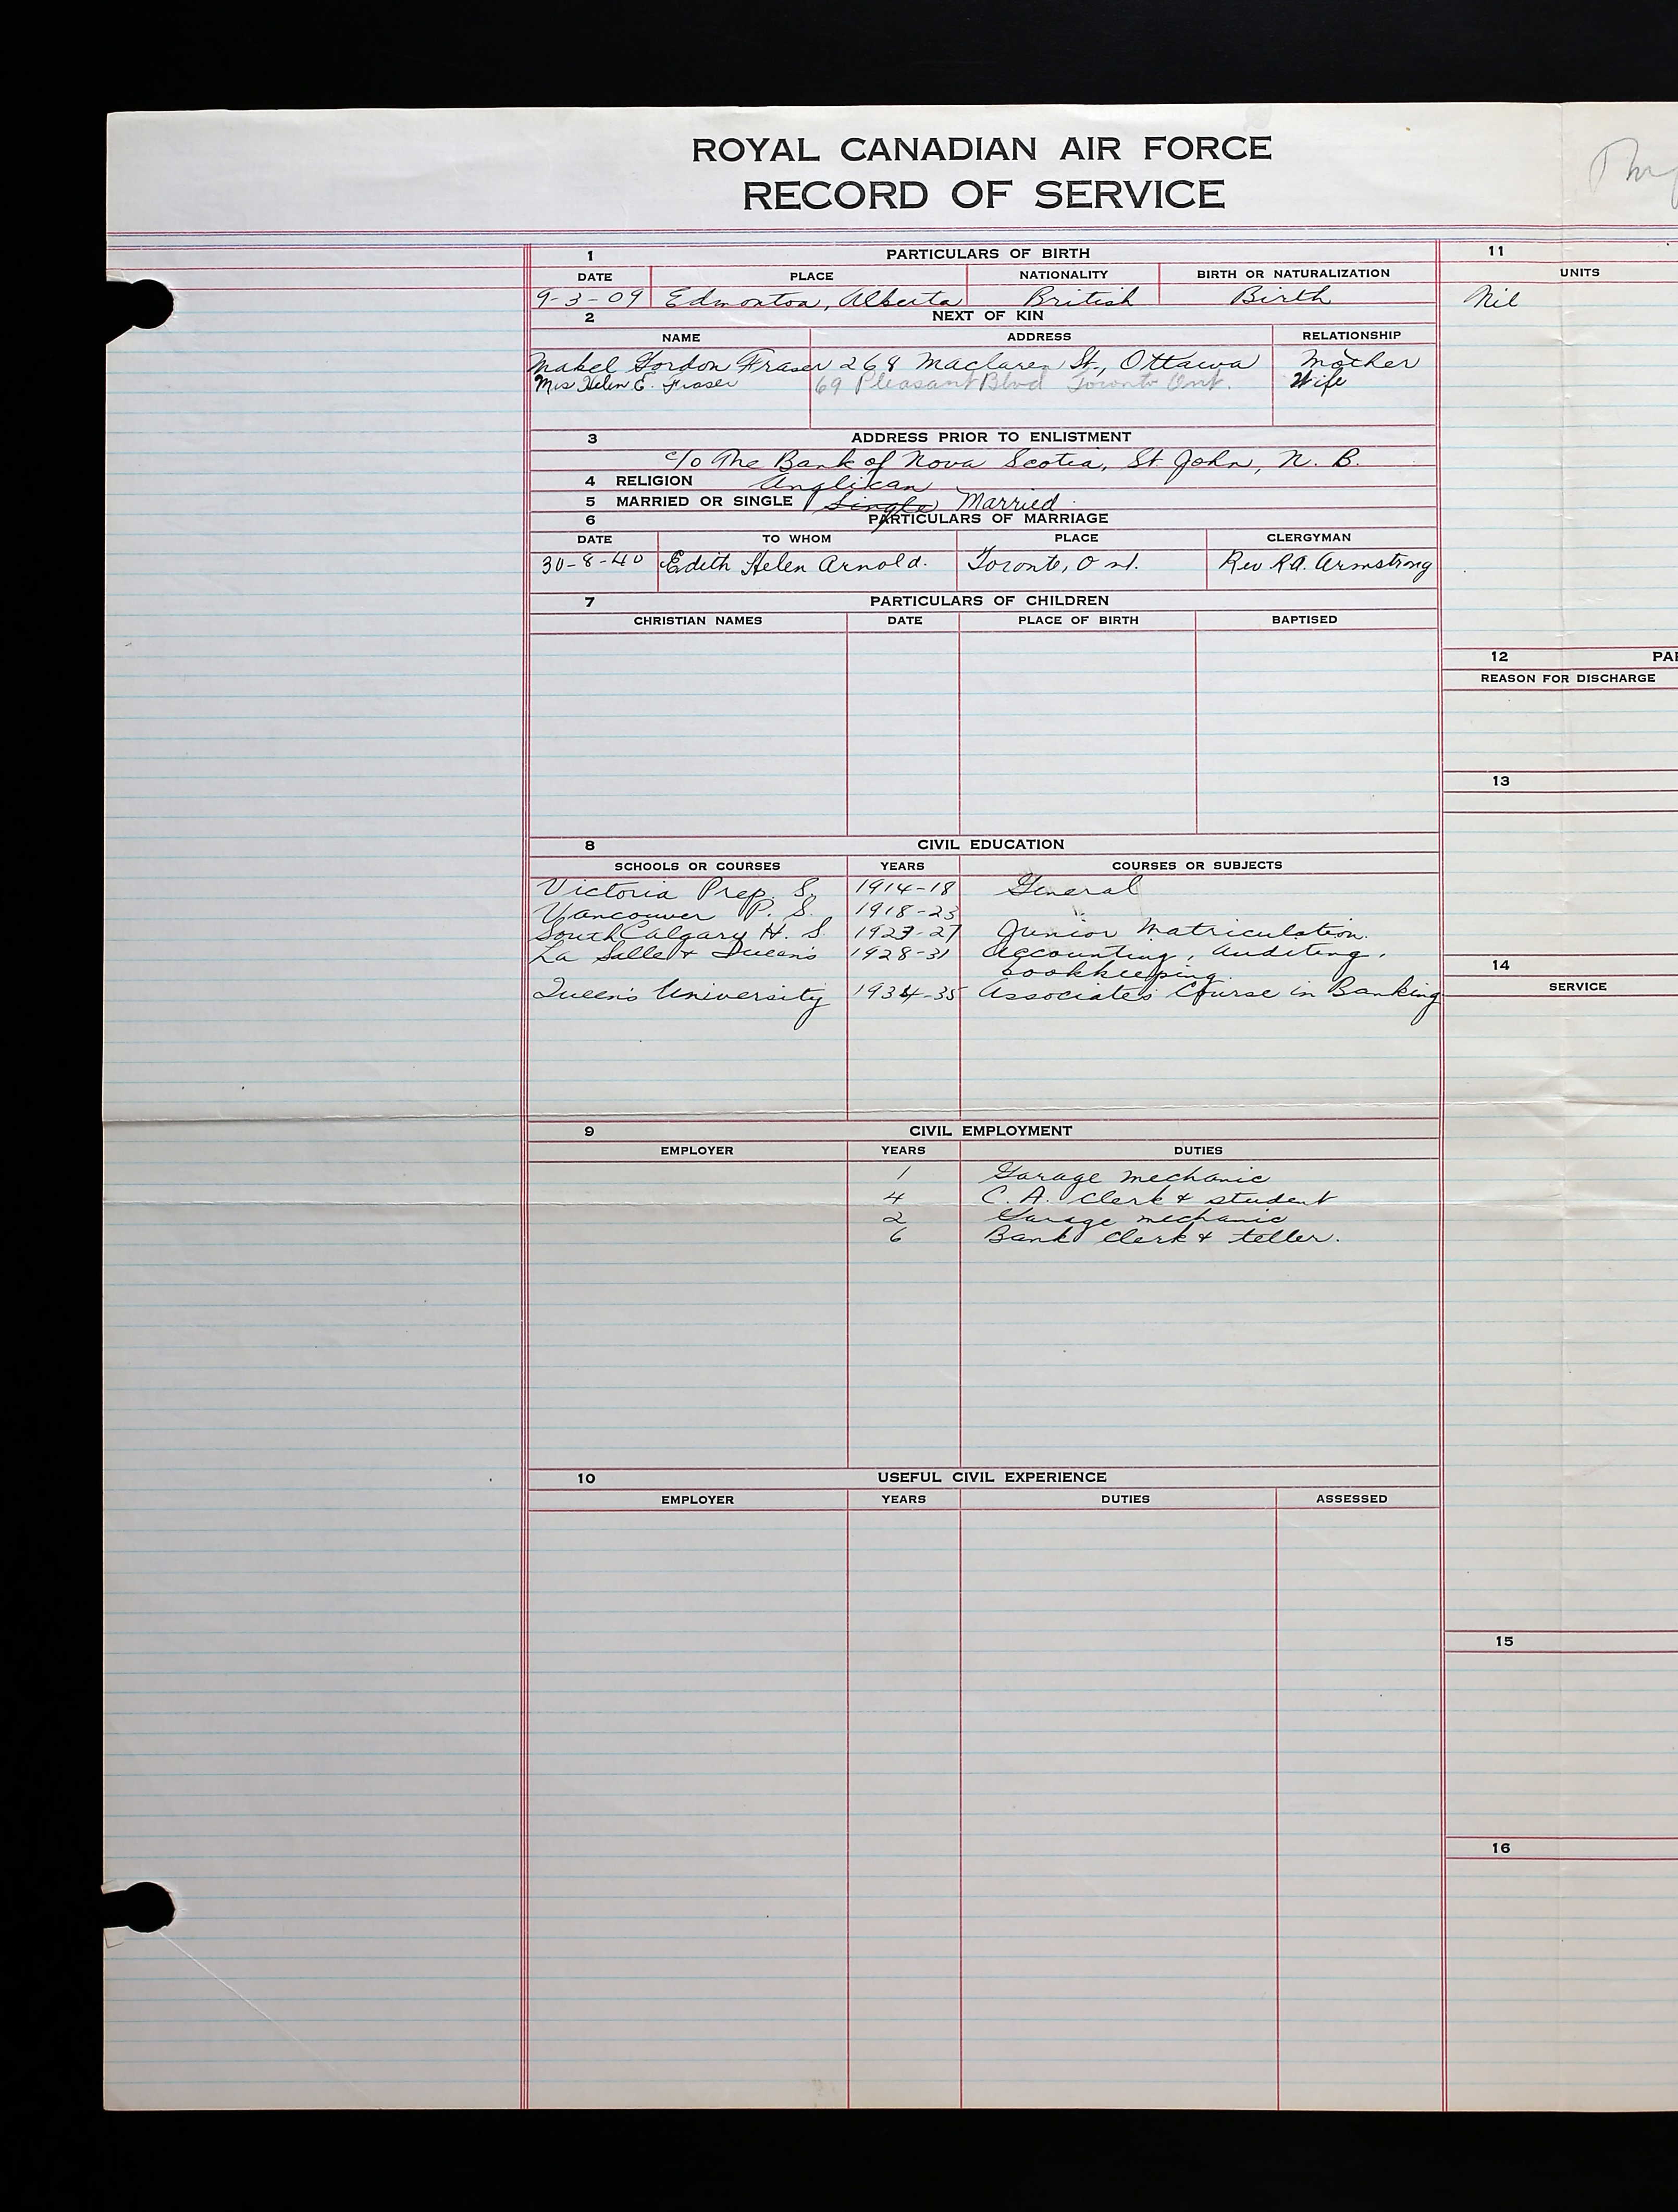 ROYAL CANADIAN AIR FORCE
RECORD OF SERVICE
1 PARTICULARS OF BIRTH
DATE PLACE NATIONALITY BIRTH OR NATURALIZATION
9-3-09 Edmonton, Alberta British Birth
2 NEXT OF KIN
NAME ADDRESS RELATIONSHIP
Mabel Gordon Fraser 268 Maclaren St., Ottawa Mother
Mrs Helen E. Fraser 69 Pleasant Blvd Toronto Ont. Wife
3 ADDRESS PRIOR TO ENLISTMENT
c/o The Bank of Nova Scotia, St. John, N. B.
4 RELIGION Anglican
5 MARRIED OR SINGLE Single Married
6 PARTICULARS OF MARRIAGE
DATE TO WHOM PLACE CLERGYMAN
30-8-40 Edith Helen Arnold. Toronto, Ont. Rev R.A. Armstrong
7 PARTICULARS OF CHILDREN
CHRISTIAN NAMES DATE PLACE OF BIRTH BAPTISED
8 CIVIL EDUCATION
SCHOOLS OR COURSES YEARS COURSES OR SUBJECTS
Victoria Prep. S. 1914-18 General
Vancouver P. S. 1918-23
South Calgary H. S. 1923-27 Junior Matriculation.
La Salle & Queen's 1928-31 Accounting, Auditing,
bookkeeping.
Queen's University 1934-35 Associate's Course in Banking
9 CIVIL EMPLOYMENT
EMPLOYER YEARS DUTIES
1 Garage mechanic
4 C. A. Clerk & student
2 Garage mechanic
6 Bank Clerk & teller.
10 USEFUL CIVIL EXPERIENCE
EMPLOYER YEARS DUTIES ASSESSED
11
UNITS
Nil
12 PA
REASON FOR DISCHARGE
13
14
SERVICE
15
16